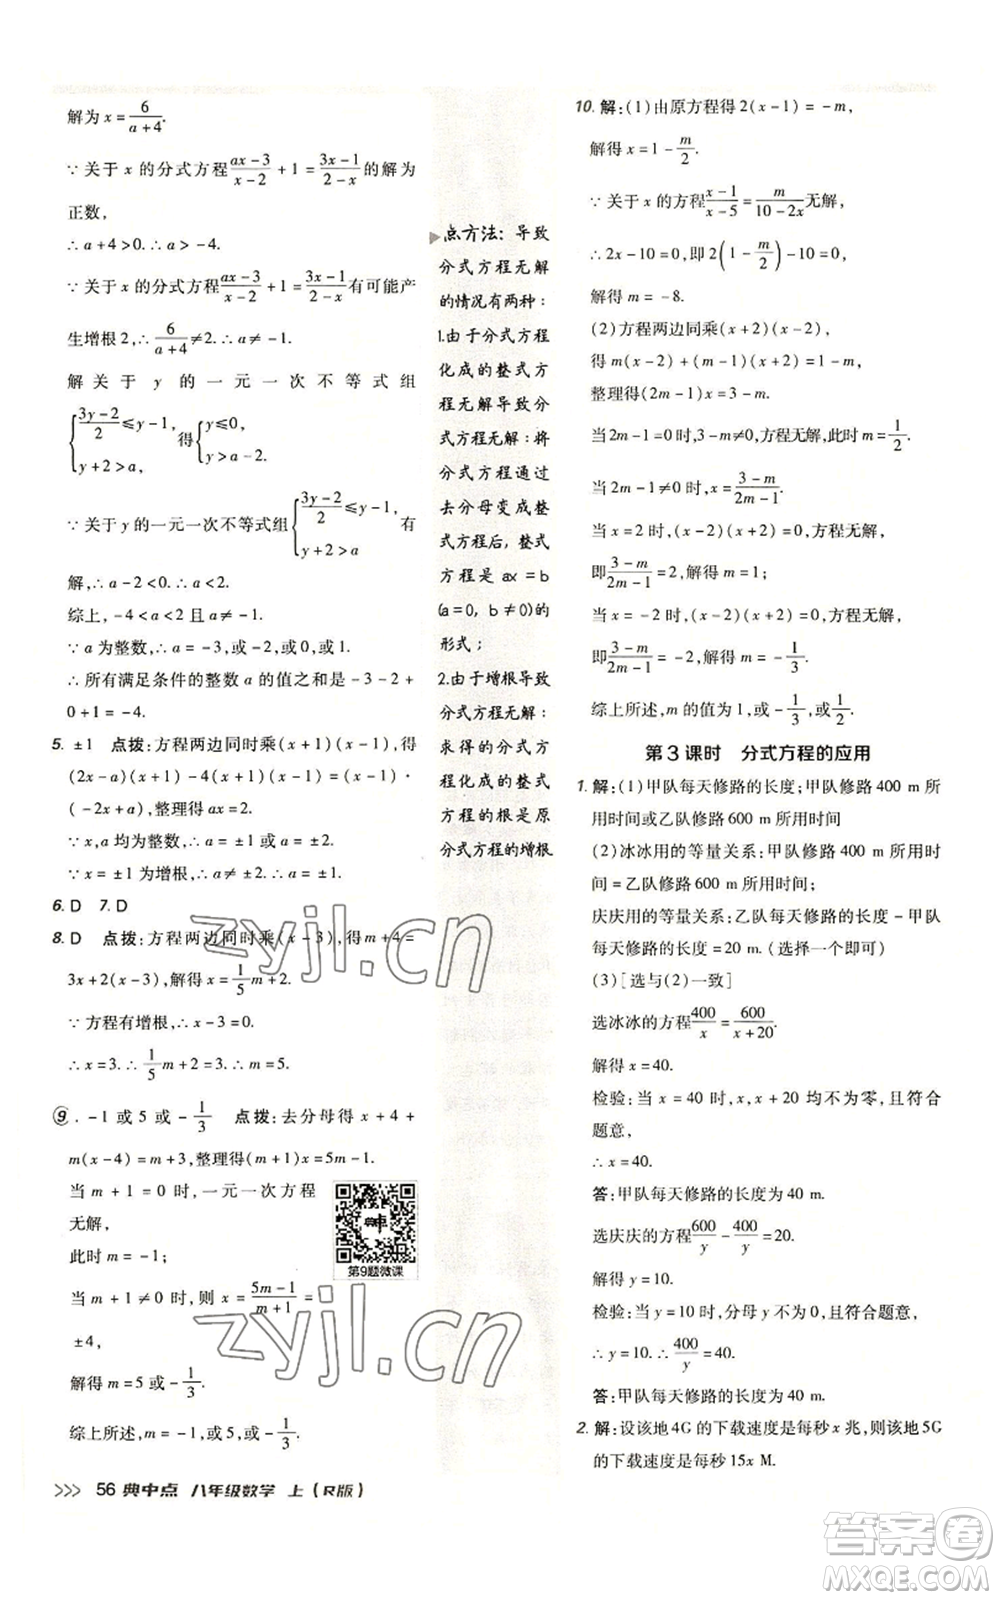 解为 x = 6/(a+4).
∵ 关于 x 的分式方程 (ax-3)/(x-2) + 1 = (3x-1)/(2-x) 的解为
正数,
∴ a+4>0. ∴ a>-4.
∵ 关于 x 的分式方程 (ax-3)/(x-2) + 1 = (3x-1)/(2-x) 有可能产
生增根 2, ∴ 6/(a+4) ≠ 2. ∴ a ≠ -1.
解关于 y 的一元一次不等式组
{(3y-2)/2 ≤ y-1, y+2>a, 得 {y≤0, y>a-2.
∵ 关于 y 的一元一次不等式组 {(3y-2)/2 ≤ y-1, y+2>a 有
解, ∴ a-2<0. ∴ a<2.
综上, -4<a<2 且 a≠-1.
∵ a 为整数, ∴ a = -3, 或 -2, 或 0, 或 1.
∴ 所有满足条件的整数 a 的值之和为 -3-2+
0+1=-4.
5. ±1 点拨:方程两边同时乘(x+1)(x-1),得
(2x-a)(x-1)+(x+1)(x-1)=(x-1)·
(-2x+a),整理得 ax=2.
∵ x,a 均为整数, ∴ a=±1 或 a=±2.
∵ x=±1 为增根, ∴ a≠±2. ∴ a=±1.
6. D 7. D
8. D 点拨:方程两边同时乘(x-3),得 m+4=
3x+2(x-3),解得 x = 1/5 m+2.
∵ 方程有增根, ∴ x-3=0.
∴ x=3. ∴ 1/5 m+2=3. ∴ m=5.
9. -1 或 5 或 -1/3 点拨:去分母得 x+4+
m(x-4)=m+3,整理得(m+1)x=5m-1.
当 m+1=0 时,一元一次方程
无解,
此时 m=-1;
当 m+1≠0 时,则 x = (5m-1)/(m+1) =
±4,
解得 m=5 或 -1/3.
综上所述, m=-1, 或 5, 或 -1/3.
第9题微课
>>> 56 典中点 八年级数学 上(R版)
点方法:导致
分式方程无解
的情况有两种:
1.由于分式方程
化成的整式方
程无解导致分
式方程无解:将
分式方程通过
去分母变成整
式方程后,整式
方程是 ax=b
(a=0, b≠0)的
形式;
2.由于增根导致
分式方程无解:
求得的分式方
程化成的整式
方程的根是原
分式方程的增根.
10. 解:(1)由原方程得 2(x-1)=-m,
解得 x=1-m/2.
∵ 关于 x 的方程 (x-1)/(x-5) = m/(10-2x) 无解,
∴ 2x-10=0,即 2(1-m/2)-10=0,
解得 m=-8.
(2)方程两边同乘(x+2)(x-2),
得 m(x-2)+(m-1)(x+2)=x+1,
整理得(2m-1)x=3-m.
当 2m-1=0 时,3-m≠0,方程无解,此时 m=1/2.
当 2m-1≠0 时, x=(3-m)/(2m-1).
当 x=2 时,(x-2)(x+2)=0,方程无解,
即 (3-m)/(2m-1)=2,解得 m=1;
当 x=-2 时,(x-2)(x+2)=0,方程无解,
即 (3-m)/(2m-1)=-2,解得 m=-1/3.
综上所述,m 的值为 1,或 -1/3,或 1/2.
第 3 课时 分式方程的应用
1. 解:(1)甲队每天修路的长度;甲队修路 400 m 所
用时间或乙队修路 600 m 所用时间
(2)冰冰用的等量关系:甲队修路 400 m 所用时
间=乙队修路 600 m 所用时间;
庆庆用的等量关系:乙队每天修路的长度-甲队
每天修路的长度=20 m.(选择一个即可)
(3)[选与(2)一致]
选冰冰的方程 400/x = 600/(x+20).
解得 x=40.
检验:当 x=40 时, x, x+20 均不为零,且符合
题意,
∴ x=40.
答:甲队每天修路的长度为 40 m.
选庆庆的方程 600/y - 400/y = 20.
解得 y=10.
检验:当 y=10 时,分母 y 不为 0,且符合题意,
∴ y=10. ∴ 400/y = 40.
答:甲队每天修路的长度为 40 m.
2. 解:设该地 4G 的下载速度是每秒 x 兆,则该地 5G
的下载速度是每秒 15x M.
zyjl.cn
zyjl.cn
答案卷
MXQE.COM